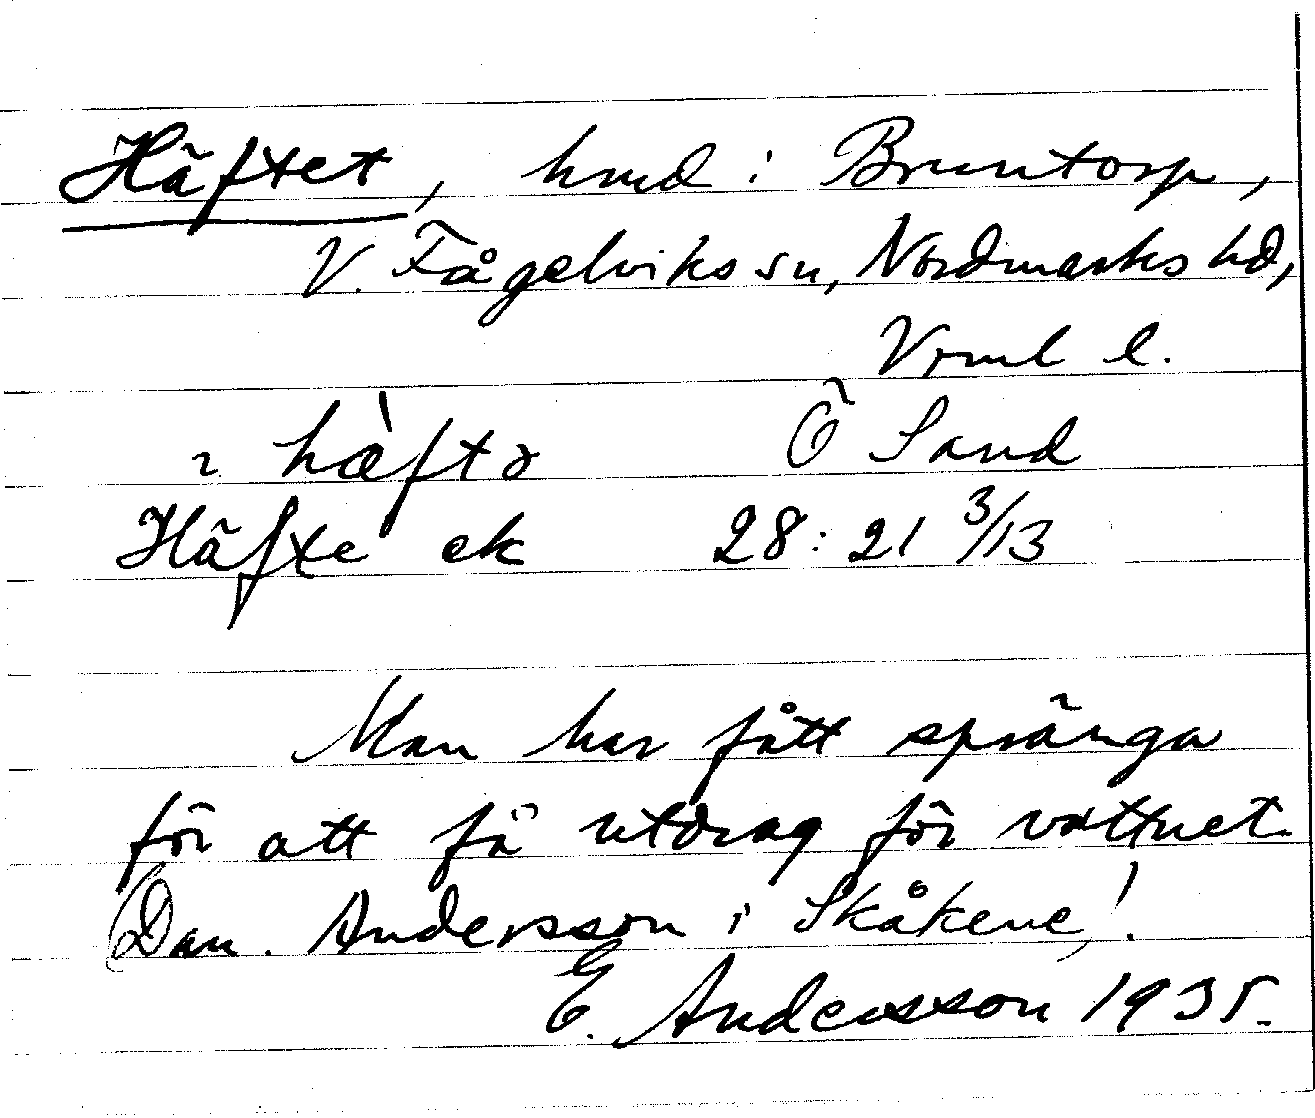 Häftet, hmd i Bruntorp,
V. Fågelviks sn, Nordmarks hd,
Vrml l.
ɿ hæ̀ftə Ö Sand
Häfte ek 28:21 3/13
Man har fått spränga
för att få utdrag för vattnet.
(Dan. Andersson i Skåkene)!.
E. Andersson 1935.